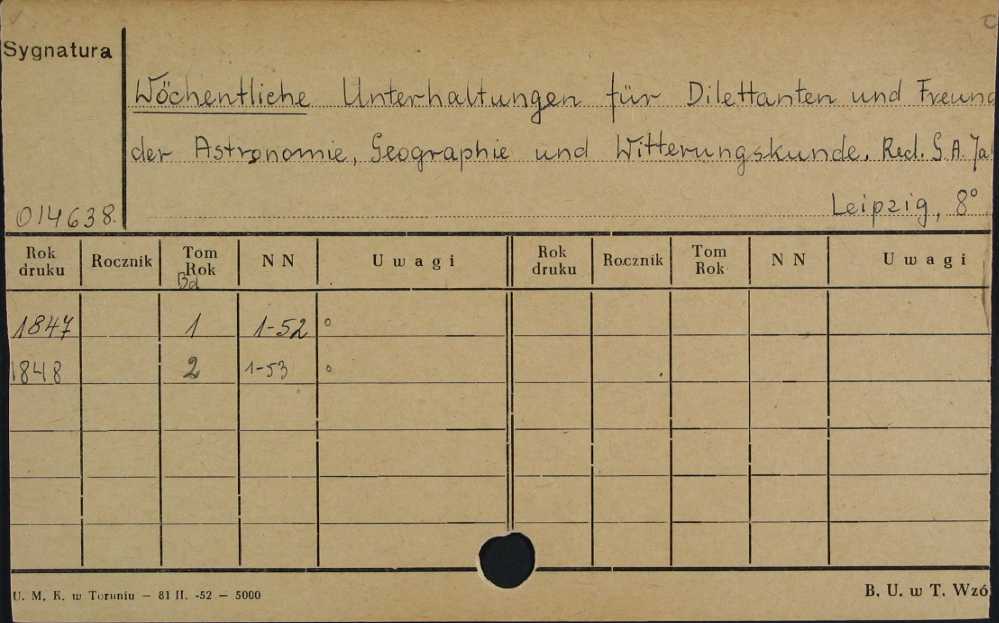 Sygnatura
Wöchentliche Unterhaltungen für Dilettanten und Freund
der Astronomie, Geographie und Witterungskunde. Red. G. A. Ja
014638. Leipzig, 8°
Rok druku Rocznik Tom Rok Bd NN Uwagi Rok druku Rocznik Tom Rok NN Uwagi
1847 1 1-52 °
1848 2 1-53 °
U. M. K. w Toruniu — 81 II. -52 — 5000 B. U. w T. Wzó